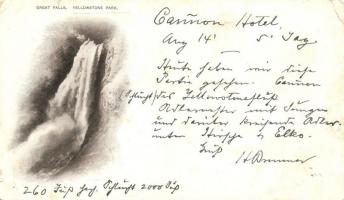 GREAT FALLS, YELLOWSTONE PARK.
Cannon Hotel,
Aug 14' 5. Tag
Heute haben wir diese
Partie gesehen. Cannon
(Schlucht) des Yellowstoneflus
Adlernester mit Jungen
und darüber kreisende Adler
unten Hirsche & Elks.
Gruß
H Brunner
260 Fuß hoch. Schlucht 2000 Fuß